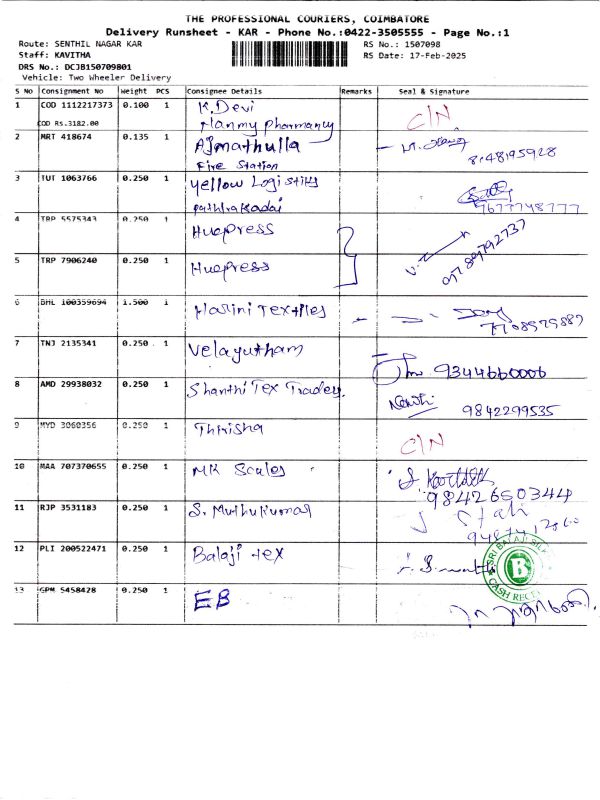 THE PROFESSIONAL COURIERS, COIMBATORE
Delivery Runsheet - KAR - Phone No.:0422-3505555 - Page No.:1
Route: SENTHIL NAGAR KAR
RS No.: 1507098
Staff: KAVITHA
RS Date: 17-Feb-2025
DRS No.: DCJB150709801
Vehicle: Two Wheeler Delivery
S No Consignment No Weight PCS Consignee Details Remarks Seal & Signature
1 COD 1112217373 0.100 1 K.Devi C/N
COD RS.3182.00 Hanmy pharmancy
2 MRT 418674 0.135 1 Ajmathulla
Fire Station 8148195928
3 TUT 1063766 0.250 1 Yellow Logistiks
pathirakadai 9677748777
4 TRP 5575343 0.250 1 Huepress
5 TRP 7906240 0.250 1 Huepress
6 BHL 100359694 1.500 1 Harini Textiles
7 TNJ 2135341 0.250 1 Velayutham 9344660006
8 AMD 29938032 0.250 1 Shanthi Tex Traders. 9842299535
9 MYD 3060356 0.250 1 Thirisha C/N
10 MAA 707370655 0.250 1 MK Scales
9842650344
11 RJP 3531183 0.250 1 S. Muthukumar
12 PLI 200522471 0.250 1 Balaji tex
SRI BALAJI SILK
B
CASH RECE
13 GPM 5458428 0.250 1 EB